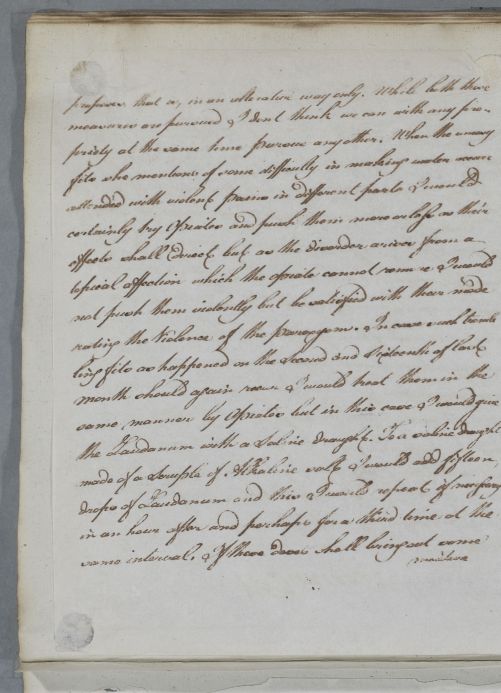 propose that as, in an alterative way only. While both these
measures are pursued I dont think we can with any pro-
priety at the same time pursue any other. When the uneasy
fits who mentions of some difficulty in making water occurr
attended with violent pains in different parts I would
certainly try Opiates and push them more or less as their
effects shall direct but as the disorder arises from a
topical affection which the opiate cannot remove I would
not push them violently but be satisfied with their mode
rating the Violence of the paroxysm. In case such tremb
ling fits as happened on the second and sixteenth of last
month should again recur I would treat them in the
same manner by Opiates but in this case I would give
the Laudanum with a Saline draught. To a saline draught
made of a Scruple of Alkaline salt I would add fifteen
drops of Laudanum and this I would repeat if necessary
in an hour after and perhaps for a third time at the
same interval. If these doses shall bring out some
moisture